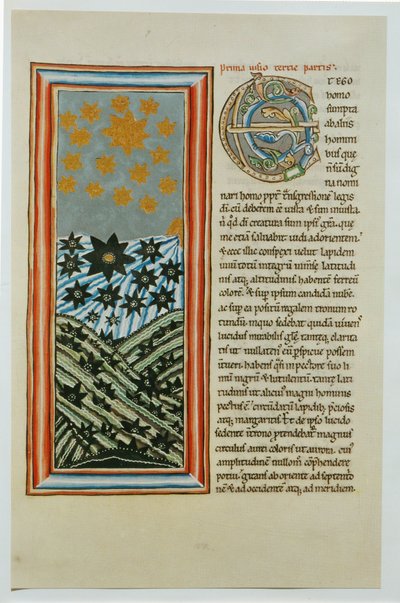 prima uisio tertie partis:
ET EGO
homo
sumpta
ab aliis
homini
bus que
n̄ sū dig
na nomi
nari homo ppť t̄nsgressionē legis
dī. cū deberem eē iusta & sum iniusta.
n̄ qď dī creatura sum ipsi᷒ gr̄a. que
me etiā saluabit uidi ad orientem.
& ecce illic conspexi uelut lapidem
unū totū integrū inm̄se latitudi
nis atq; altitudinis habentē ferreū
colorē. & sup ipsum candidā nubē.
ac sup ea positū regalem tronum ro
tundū. in quo sedebat quidā uiuens
lucidus mirabilis glę tantęq; clarita
tis ut nullaten᷒ eū pspicue possem
intueri. habens qͣsi in pectore suo li
mū nigrū & lutulentū tantę lati
tudinis ut alicui᷒ magni hominis
pect᷒ ē. circūdatū lapidib; p̄ciosis
atq; margaritis. Et de ipso lucido
sedente in trono p̄tendebat᷑ magnus
circulus aurei coloris ut aurora. cui᷒
amplitudinē nullom̄ cōphendere
potui. girans ab oriente ad septentrio
nē & ad occidentē atq; ad meridiem.